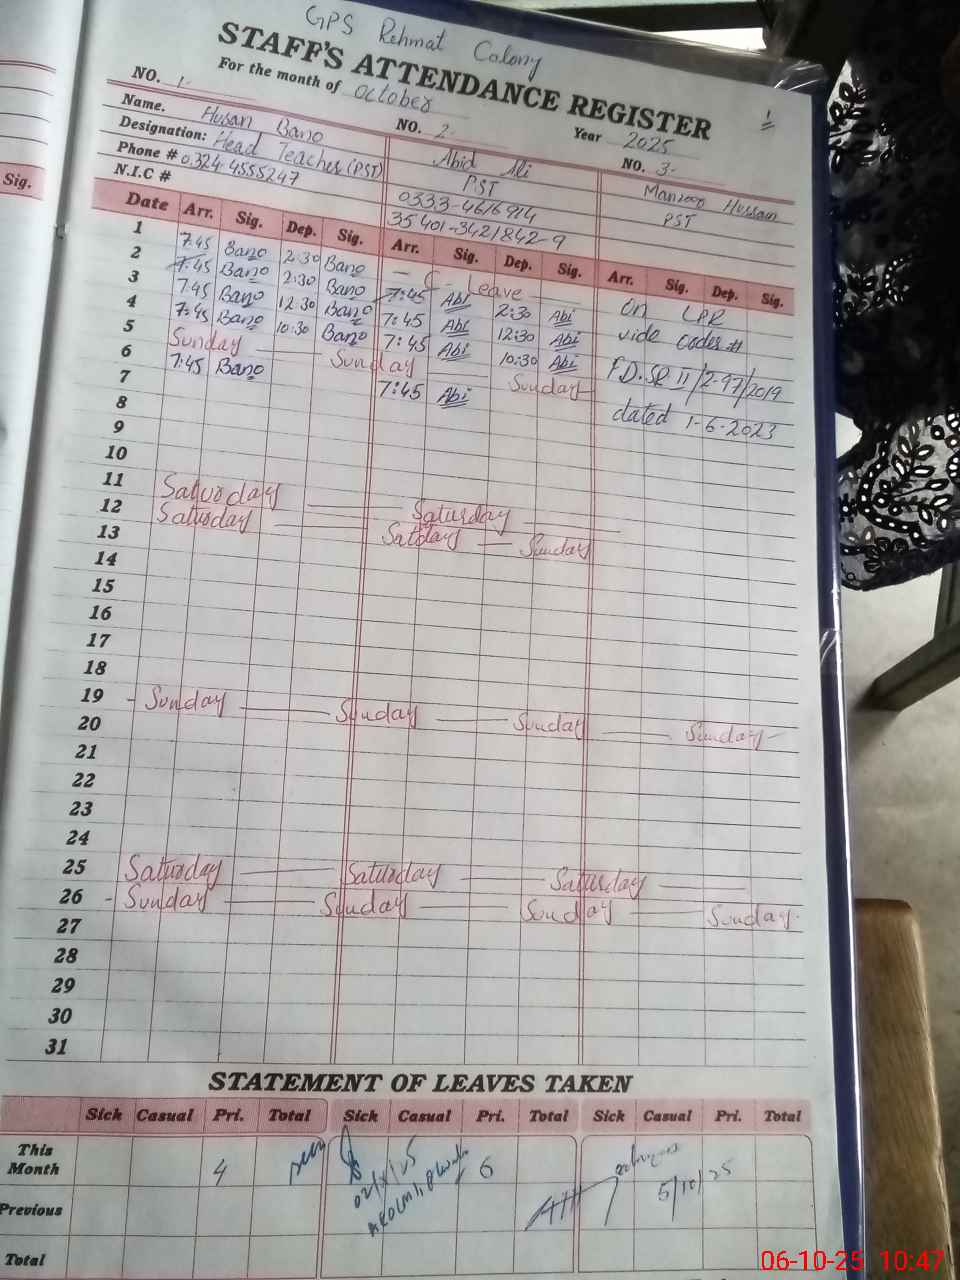 GPS Rehmat Calony
STAFF'S ATTENDANCE REGISTER
For the month of October Year 2025
NO. 1- NO. 2- NO. 3-
Name. Husan Bano Abid Ali Manzoor Hussain
Designation: Head Teacher (PST) PST PST
Phone # 0324 4555247 0333-4616914
N.I.C # 35401-3421842-9
Date Arr. Sig. Dep. Sig. Arr. Sig. Dep. Sig. Arr. Sig. Dep. Sig.
1 7:45 Bano 2:30 Bano — C- Leave — On LPR
2 7:45 Bano 2:30 Bano 7:45 Abi 2:30 Abi vide
3 7:45 Bano 12:30 Bano 7:45 Abi 12:30 Abi
4 7:45 Bano 10:30 Bano 7:45 Abi 10:30 Abi
5 Sunday — Sunday — Sunday
6 7:45 Bano 7:45 Abi dated 1-6-2023
7
8
9
10
11 Saturday — Saturday —
12 Saturday — Satday — Sunday
13
14
15
16
17
18
19 - Sunday — Sunday — Sunday — Sunday -
20
21
22
23
24
25 Saturday — Saturday — Saturday —
26 - Sunday — Sunday — Sunday — Sunday-
27
28
29
30
31
STATEMENT OF LEAVES TAKEN
Sick Casual Pri. Total Sick Casual Pri. Total Sick Casual Pri. Total
This Month 4 6 5/10/25
Previous
Total
Sig.
1
06-10-25 10:47